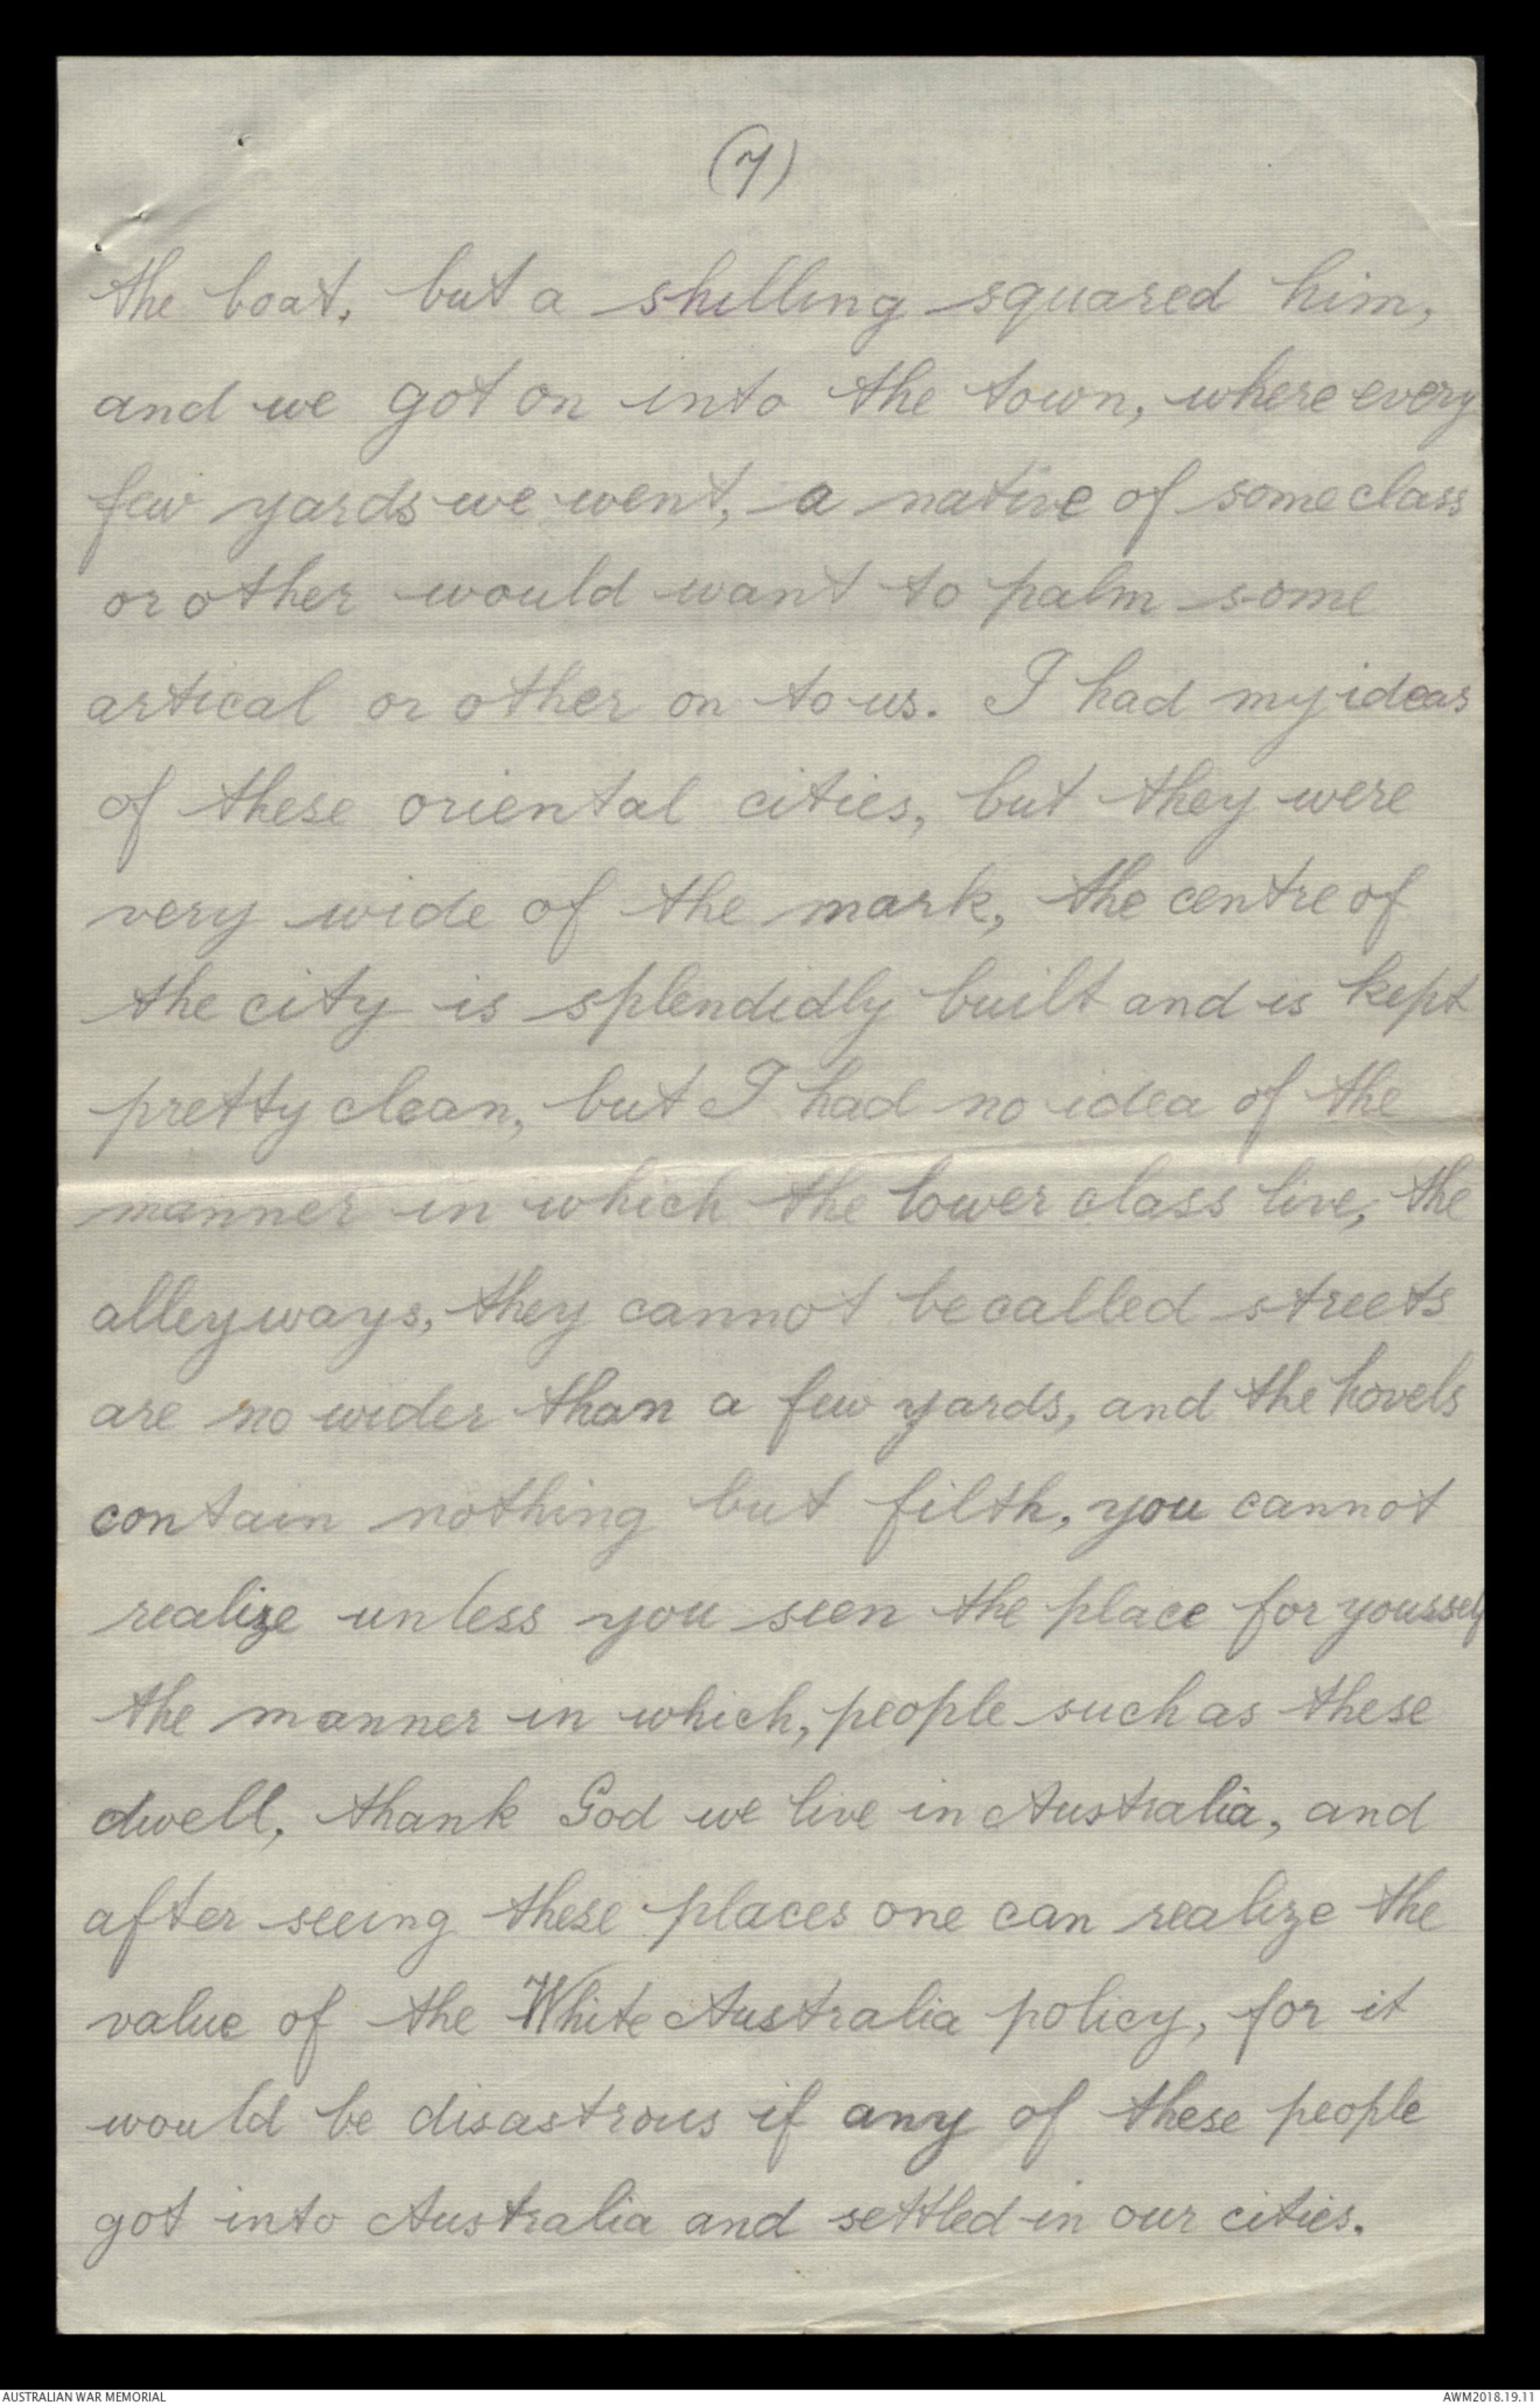 (7)
the boat, but a shilling squared him,
and we got on into the town, where every
few yards we went, a native of some class
or other would want to palm some
artical or other on to us. I had my ideas
of these oriental cities, but they were
very wide of the mark, the centre of
the city is splendidly built and is kept
pretty clean, but I had no idea of the
manner in which the lower class live, the
alleyways, they cannot be called streets
are no wider than a few yards, and the hovels
contain nothing but filth, you cannot
realize unless you seen the place for yourself
the manner in which, people such as these
dwell, thank God we live in Australia, and
after seeing these places one can realize the
value of the White Australia policy, for it
would be disastrous if any of these people
got into Australia and settled in our cities.
AUSTRALIAN WAR MEMORIAL
AWM2018.19.11